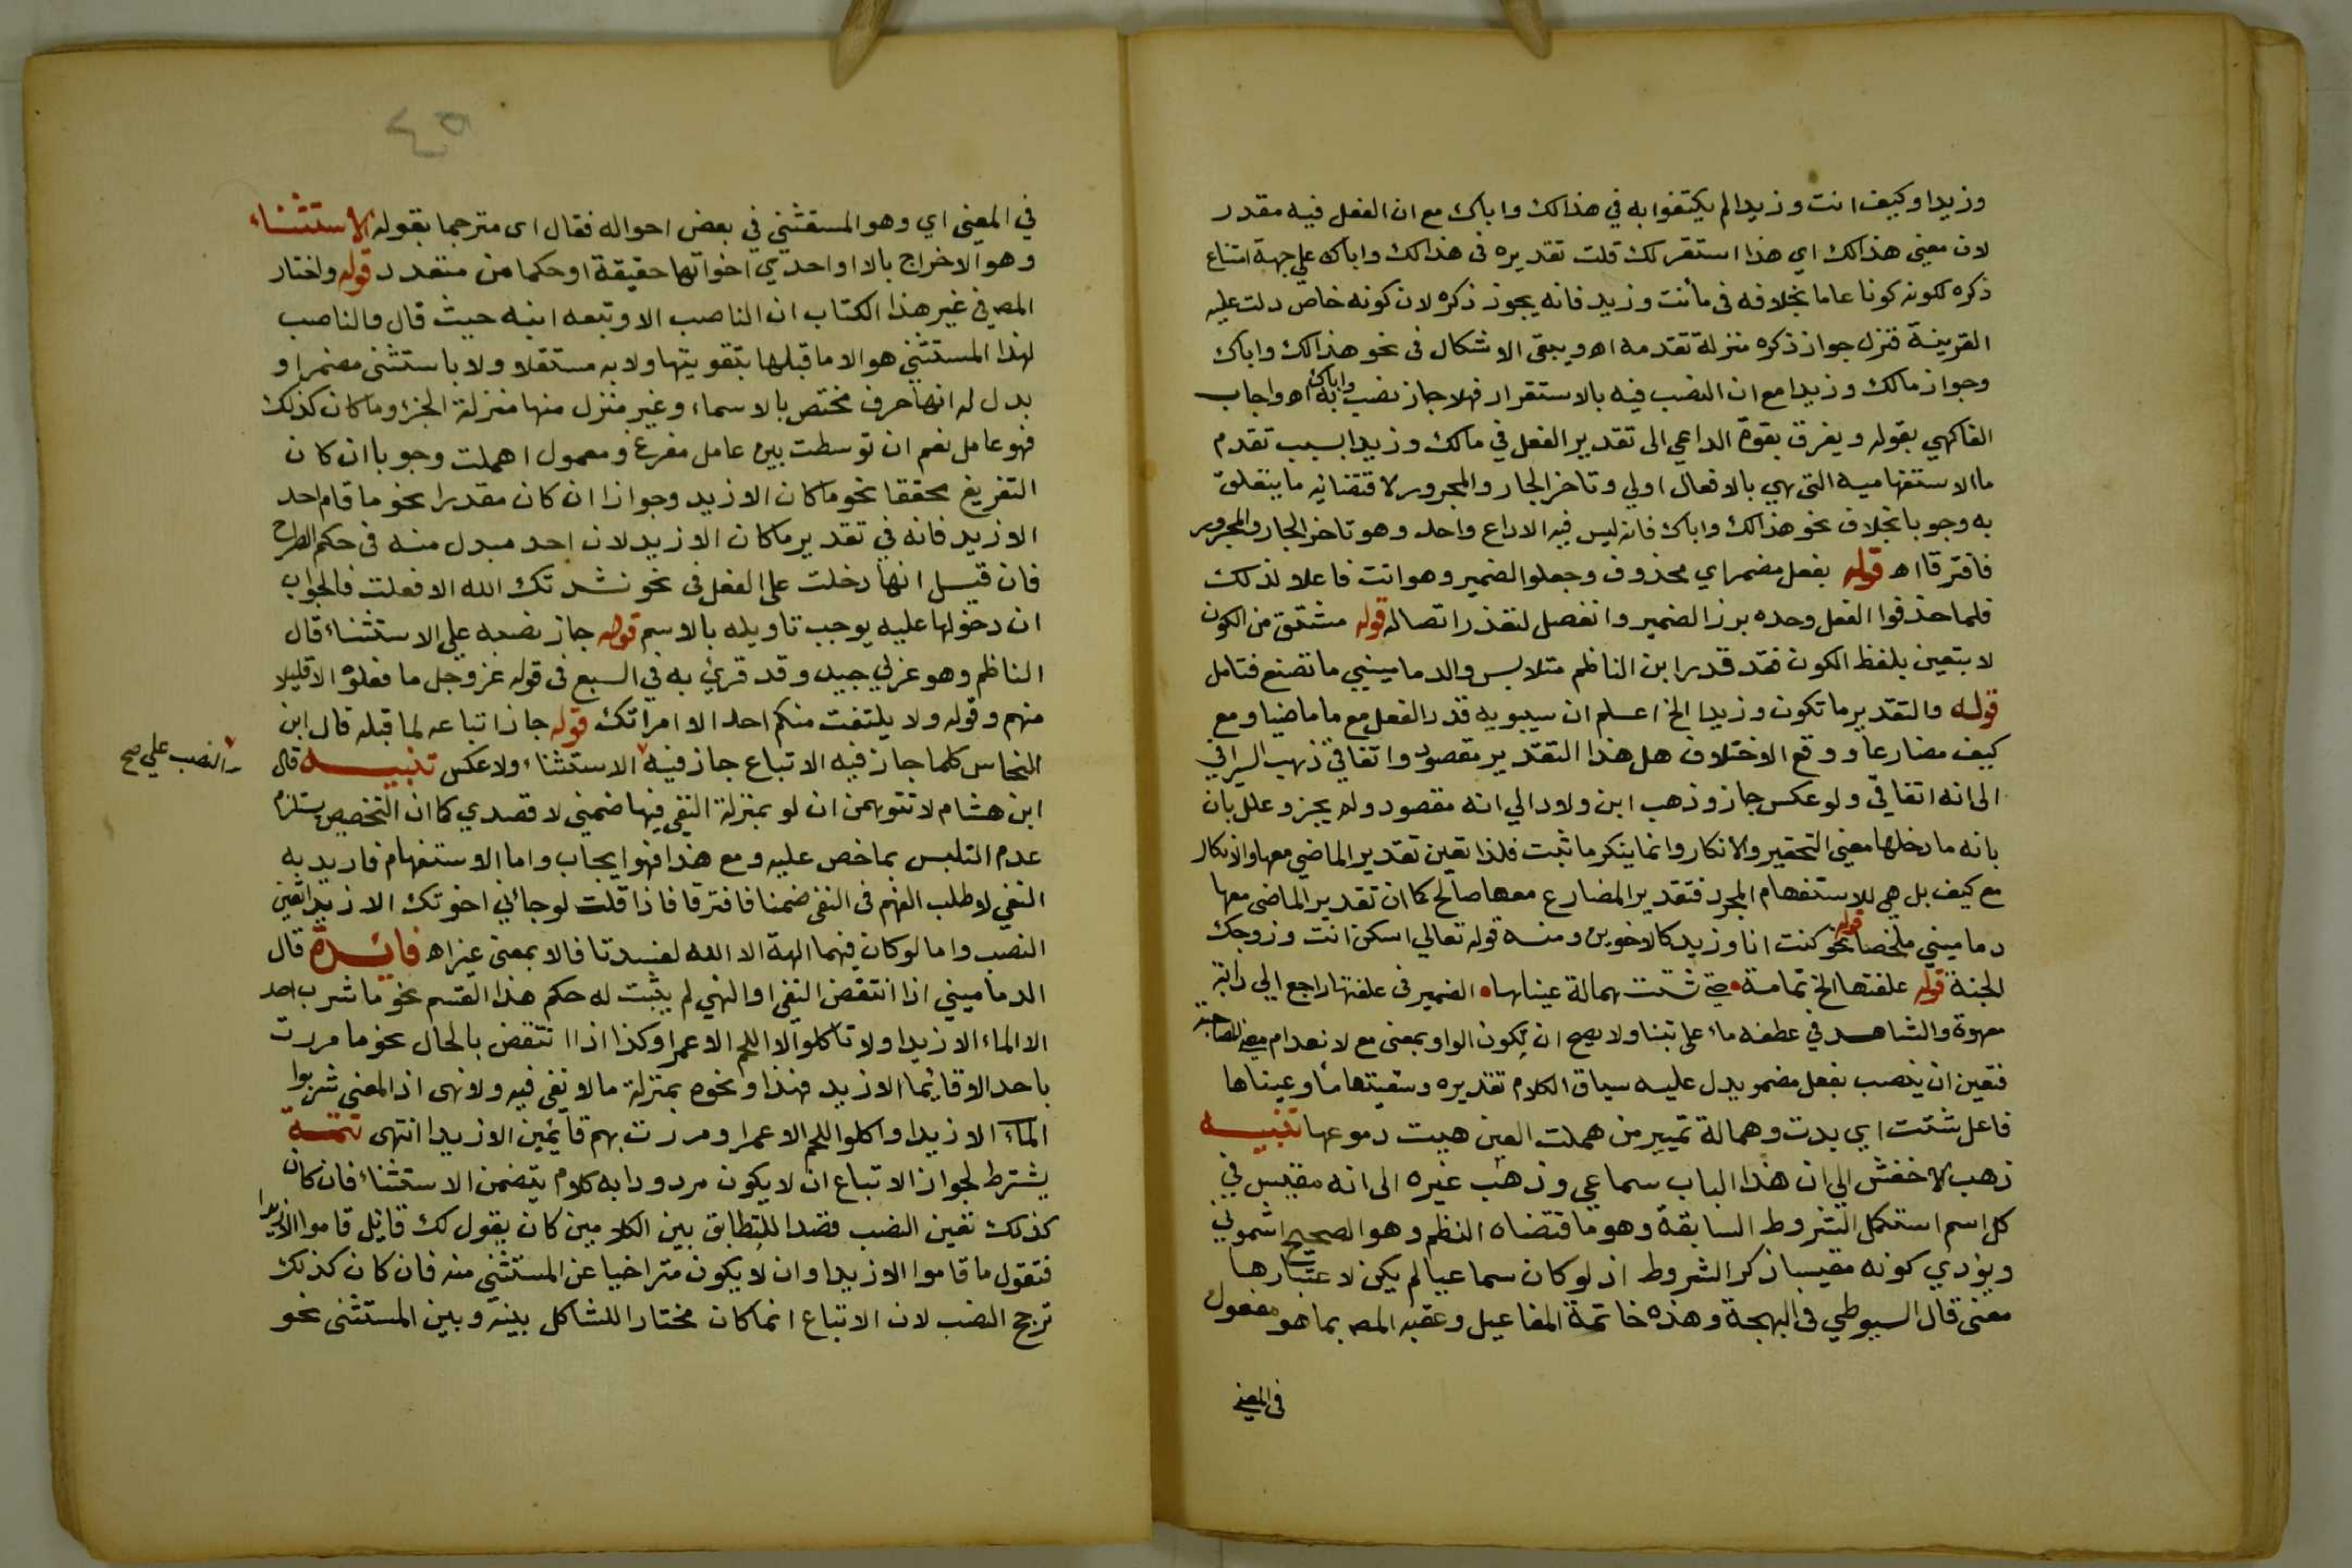 وزيدا وكيف انت وزيدا لم يكتفوا به في هذالك واباك مع ان الفعل فيه مقدر
لان معنى هذالك اي هذا استقر لك قلت تقديره في هذالك واباك على جهة امتناع
ذكره لكونه كونا عاما بخلافه في ما أنت وزيد فانه يجوز ذكره لان كونه خاص دلت عليه
القرينة فنزل جواز ذكره منزلة تقدمه اه ويبقى الاشكال في نحو هذالك واباك
وجواز مالك وزيدا مع ان النصب فيه بالاستقرار فهلا جاز نصب واباك به اه واجاب
الفاكهي بقوله ويفرق بقوة الداعي الى تقدير الفعل في مالك وزيدا بسبب تقدم
ما الاستفهامية التي هي بالافعال اولي وتاخر الجار والمجرور لاقتضائه ما يتعلق
به وجوبا بخلاف نحو هذالك واباك فانه ليس فيه الا داع واحد وهو تاخر الجار والمجرور
فافترقا اه قوله بفعل مضمر اي محذوف وجعلوا الضمير وهو انت فاعلا لذلك
فلما حذفوا الفعل وحده برز الضمير وانفصل لتعذر اتصاله قوله مشتق من الكون
لا يتعين بلفظ الكون فقد قدر ابن الناظم متلابس والدماميني ما تصنع فتامل
قوله والتقدير ما تكون وزيدا الخ اعلم ان سيبويه قدر الفعل مع ما ماضيا ومع
كيف مضارعا ووقع الاختلاف هل هذا التقدير مقصود واتفاقي ذهب السرافي
الى انه اتفاقي ولو عكس جاز وذهب ابن ولاد الي انه مقصود ولم يجز وعلل بان
بانه ما دخلها معنى التحقير والانكار وانما ينكر ما ثبت فلذا تعين تقدير الماضي معها والانكار
مع كيف بل هي للاستفهام المجرد فتقدير المضارع معها صالح كما ان تقدير الماضي معها
دماميني ملخصا قوله نحو كنت انا وزيد كالاخوين ومنه قوله تعالي اسكن انت وزوجك
الجنة قوله علفتها الخ تمامه حتى شتت همالة عيناها الضمير في علفتها راجع الي دابة
معهوة والشاهد في عطفه ماء على تبنا ولا يصح ان تكون الواو بمعنى مع لانعدام معنى المصاحبة
فتعين ان ينصب بفعل مضمر يدل عليه سياق الكلام تقديره وسقيتها ماء وعيناها
فاعل شتت اي بدت وهمالة تمييز من هملت العين هيت دموعها تنبيه
ذهب الاخفش الي ان هذا الباب سماعي وذهب غيره الى انه مقيس في
كل اسم استكمل الشروط السابقة وهو ما قتضاه النظم وهو الصحيح اشموني
ويؤدي كونه مقيسا ذكر الشروط اذ لو كان سماعيا لم يكن لاعتبارها
معنى قال السيوطي في البهجة وهذه خاتمة المفاعيل وعقبه المص بما هو مفعول
في المعنى
٤٥
في المعنى اي وهو المستثنى في بعض احواله فقال اى مترجما بقوله الاستثناء
وهو الاخراج بالا او احدي اخواتها حقيقة او حكما من متعدد قوله واختار
المص في غير هذا الكتاب ان الناصب الا وتبعه ابنه حيث قال والناصب
لهذا المستثني هو الا ما قبلها بتقويتها ولا به مستقلا ولا باستثنى مضمرا و
يدل له انها حرف مختص بالاسماء وغير منزل منها منزلة الجزء وما كان كذلك
فهو عامل نعم ان توسطت بين عامل مفرغ ومعمول اهملت وجوبا ان كان
التفريغ محققا نحو ما كان الا زيد وجوازا ان كان مقدرا نحو ما قام احد
الا زيد فانه في تقدير ما كان الا زيد لان احد مبدل منه في حكم الطرح
فان قيل انها دخلت على الفعل في نحو نشدتك الله الا فعلت فالجواب
ان دخولها عليه يوجب تاويله بالاسم قوله جاز نصبه علي الاستثناء قال
الناظم وهو عزبي جيد وقد قرئ به في السبع في قوله عز وجل ما فعلوه الا قليلا
منهم وقوله ولا يلتفت منكم احد الا امراتك قوله جاز اتباعه لما قبله قال ابن
النحاس كلما جاز فيه الاتباع جاز فيه الاستثناء ولا عكس تنبيه قال
النصب علي صح
ابن هشام لا تتوهمن ان لو بمنزلة النفي فيها ضمني لا قصدي كما ان التخصيص يستلزم
عدم التلبس بما خص عليه ومع هذا فهو ايجاب واما الاستفهام فاريد به
النفي لا طلب الفهم في النفي ضمنا فافترقا فاذا قلت لو جائني اخوتك الا زيدا تعين
النصب واما لو كان فيهما الهة الا الله لفسدتا فالا بمعنى غير اه فائدة قال
الدماميني اذا انتقض النفي او النهي لم يثبت له حكم هذا القسم نحو ما شرب احد
الا الماء الا زيدا ولا تاكلوا الا اللحم الا عمرا وكذا اذا انتقض بالحال نحو ما مررت
باحد الا قائما الا زيد فهذا ونحوه بمنزلة ما لا نفي فيه ولا نهى اذ المعنى شربوا
الماء الا زيدا واكلوا اللحم الا عمرا ومررت بهم قائمين الا زيدا انتهى تتمة
يشترط لجواز الاتباع ان لا يكون مردودا به كلام يتضمن الاستثناء فان كان
كذلك تعين النصب قصدا للتطابق بين الكلامين كان يقول لك قائل قاموا الا زيدا
فتقول ما قاموا الا زيدا وان لا يكون متراخيا عن المستثنى منه فان كان كذلك
ترجح النصب لان الاتباع انما كان مختارا للتشاكل بينه وبين المستثنى نحو